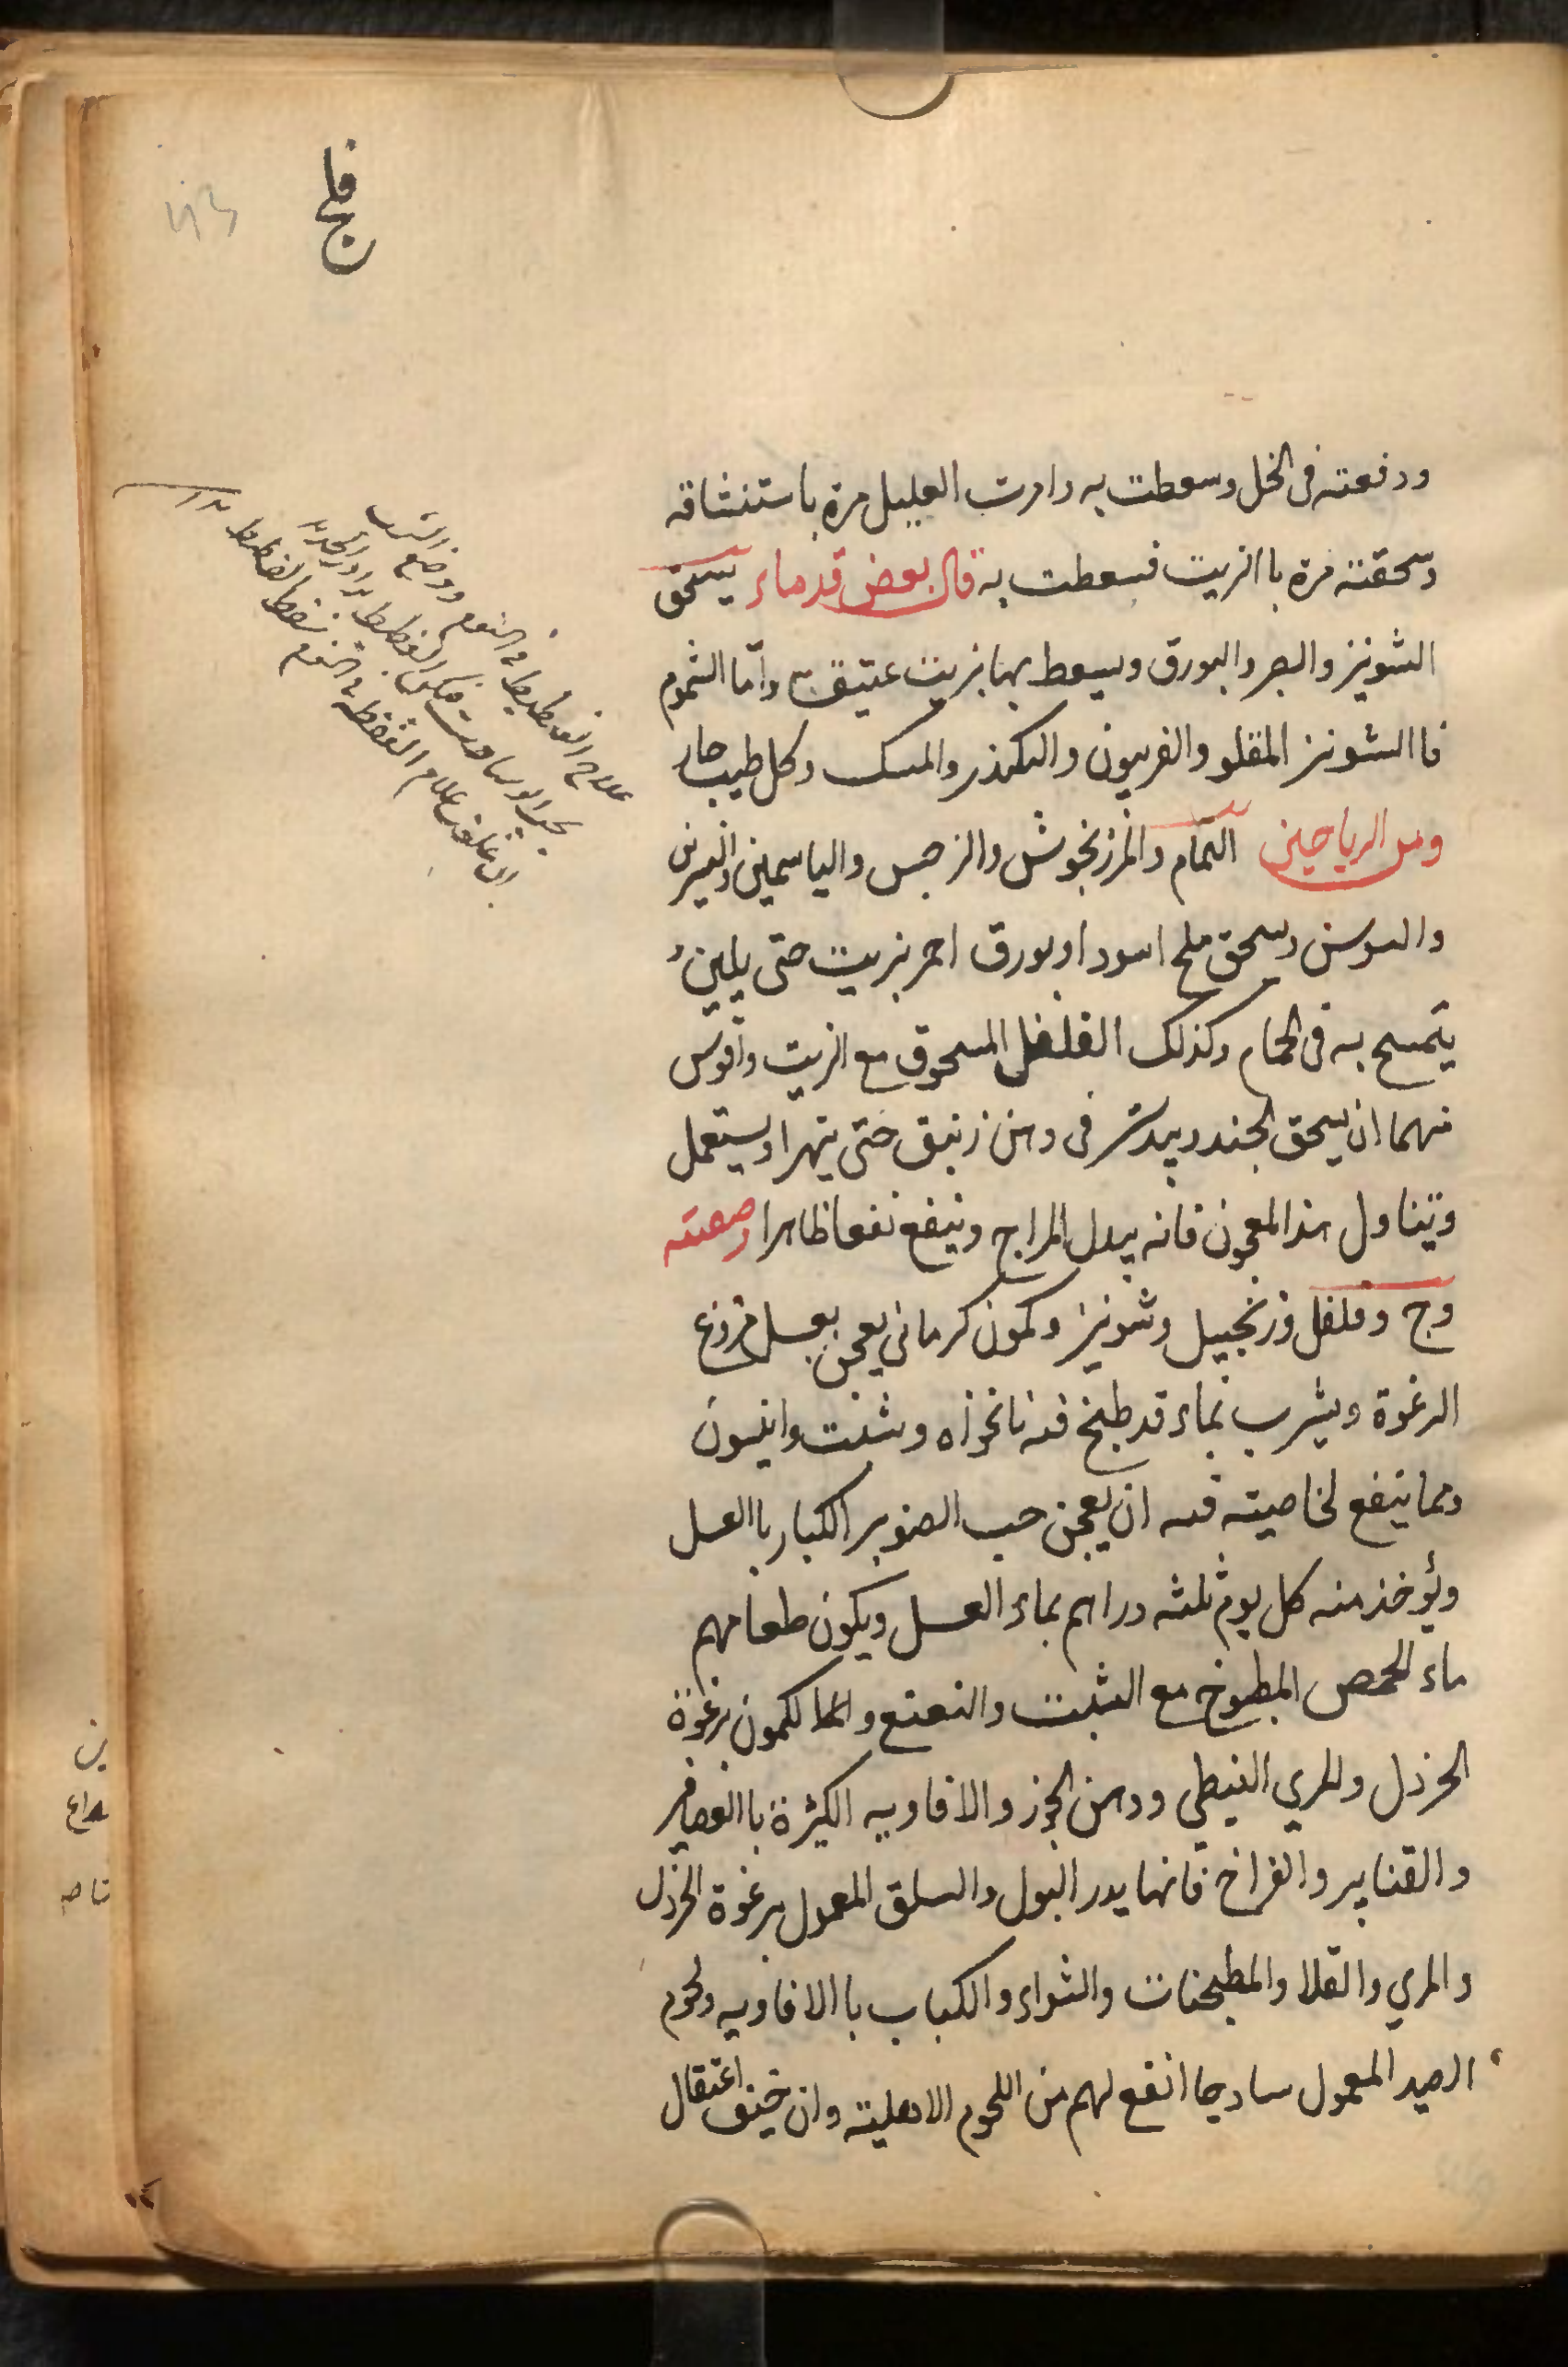 فالج
ودفعته فى الخل وسعطت به وامرت العليل مرة باستنشاقه
وسحقته مرة باالزيت فسعطت به قال بعض قدماء يسحق
الشونيز والصبر والبورق ويسعط بها بزيت عتيق واما الشموم
فاالشونيز المقلو والفربيون والكندر والمسك وكل طيب حار
ومن الرياحين النمام والمرزنجوش والنرجس والياسمين والنسرين
والسوسن وسحق ملح اسود او بورق احمر بزيت حتى يلين و
يتمسح به فى الحمام وكذلك الفلفل المسحوق مع الزيت واقوى
منهما ان يسحق الجندبيدستر فى دهن زنبق حتى يتهرا ويستعمل
وتناول هذا المعجون فانه يبدل المزاج وينفع نفعا ظاهرا وصفته
وج وفلفل وزنجبيل وشونيز وكمون كرمانى يعجن بعسل منزوع
الرغوة ويشرب بماء قد طبخ فيه نانخواه وشبت وانيسون
ومما ينفع لخاصيته فيه ان يعجن حب الصنوبر الكبار باالعسل
ويؤخذ منه كل يوم ثلثه دراهم بماء العسل ويكون طعامهم
ماء الحمص المطبوخ مع الشبت والنعنع والكمون برغوة
الخردل والمري النبطي ودهن الجوز والافاويه الكثيرة باالعصافير
والقنابير والفراخ فانها يدر البول والسلق المعمول برغوة الخردل
والمري والقلا والمطبخنات والشواء والكباب باالافاويه ولحوم
الصيد المعمول ساذجا انفع لهم من اللحوم الاهلية وان خيف اعتقال
علاج الغطيط فى النوم